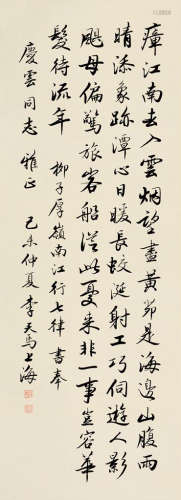 瘴江南去入雲烟望盡黃茆是海邊山腹雨
晴添象跡潭心日暖長蛟涎射工巧伺遊人影
颶母偏驚旅客船從此憂來非一事豈容華
髮待流年
柳子厚嶺南江行七律 書奉
慶雲同志 雅正
己未仲夏李天馬上海